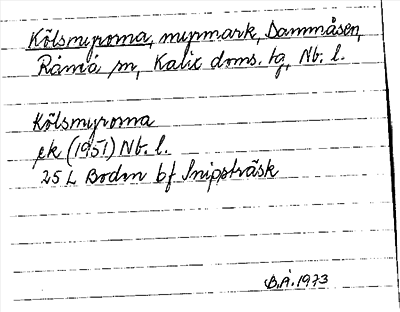 Kölsmyroma, myrmark, Dammåsen,
Råneå sn, Kalix doms. tg, Nb. l.
Kölsmyroma
ek (1951) Nb. l.
25 L Boden bf Snippträsk
B.Å. 1973